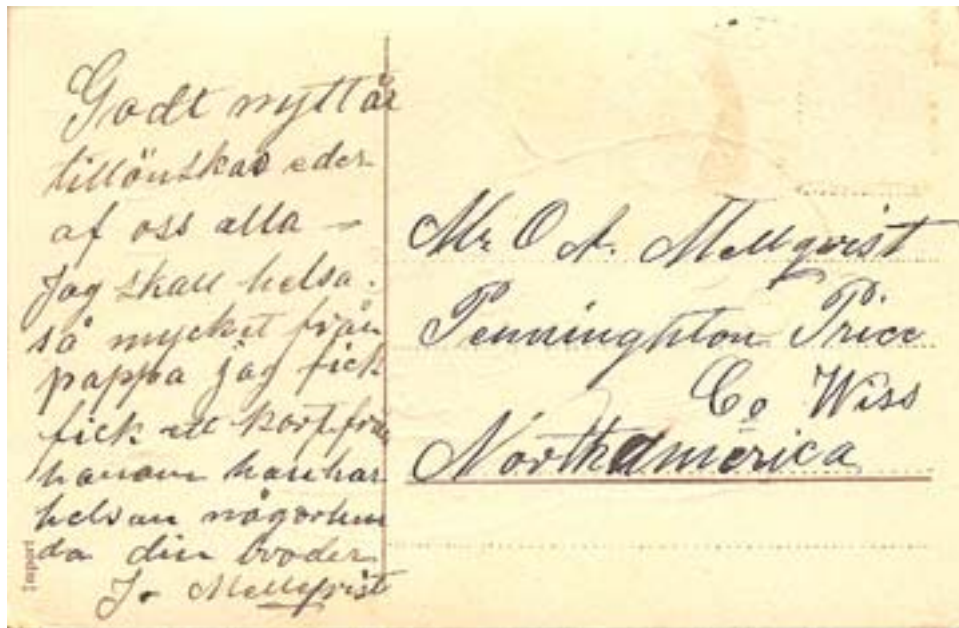 Godt nytt år
tillönskas eder
af oss alla –
Jag skall helsa.
så mycket från
pappa jag fick
fick ett kort från
honom han har
helsan någorlun
da din broder
J. Mellqvist
Mr O A. Mellqvist
Penninghton Price
Co Wiss
Northamerica
Import